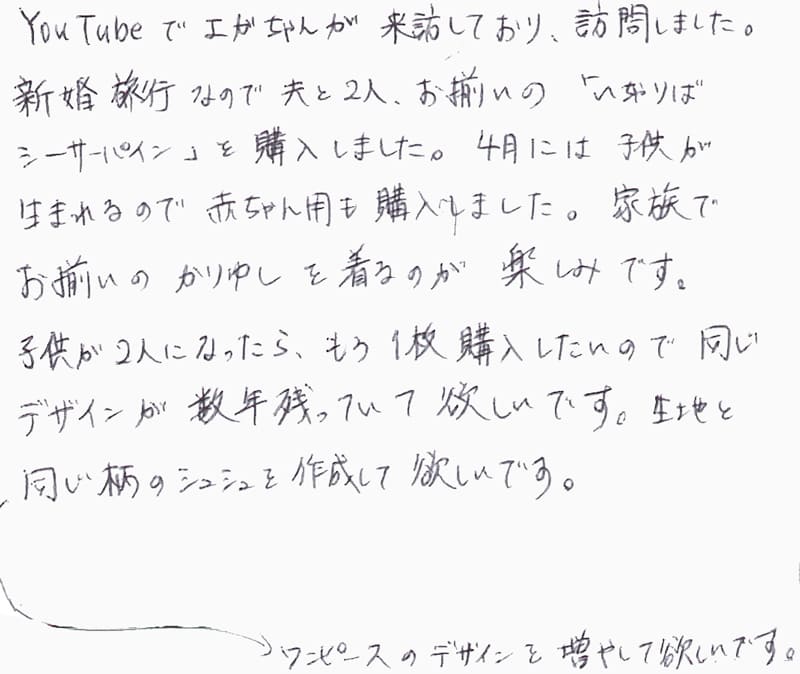 YouTubeでエガちゃんが来訪しており、訪問しました。
新婚旅行なので夫と2人、お揃いの「いちりば
シーサーパイン」を購入しました。4月には子供が
生まれるので赤ちゃん用も購入しました。家族で
お揃いのかりゆしを着るのが楽しみです。
子供が2人になったら、もう1枚購入したいので同じ
デザインが数年残っていて欲しいです。生地と
同じ柄のシュシュを作成して欲しいです。
ワンピースのデザインを増やして欲しいです。